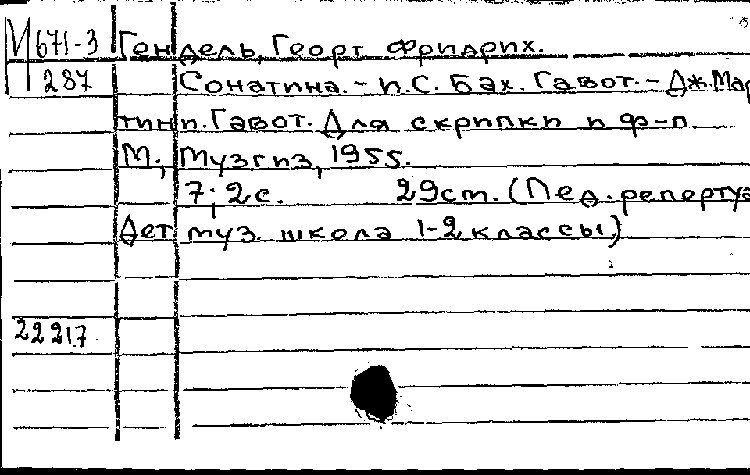 М 671-3 Гендель, Георг Фридрих.
287 Сонатина. – И.С. Бах. Гавот. – Дж. Мар
тини. Гавот. Для скрипки и ф-п
М., Музгиз, 1955.
7; 2с. 29см. (Пед. репертуа
Дет муз. школа 1-2 классы)
22217